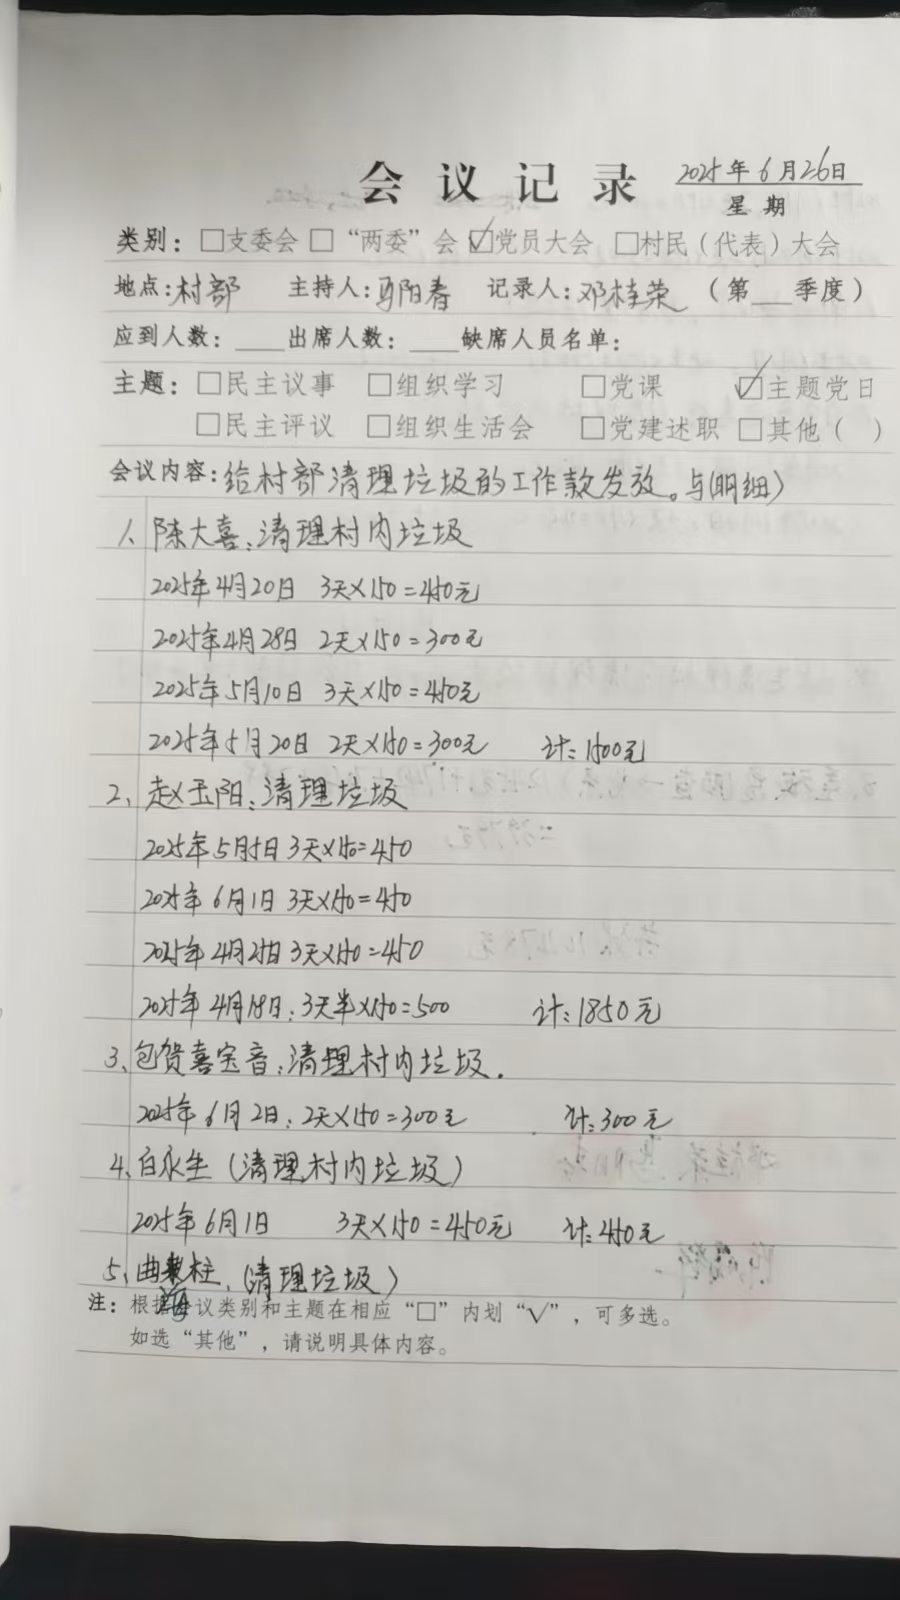 会议记录 2025年6月26日
星期
类别：□支委会 □“两委”会 ☑党员大会 □村民（代表）大会
地点：村部 主持人：马阳春 记录人：邓桂荣 （第___季度）
应到人数：____出席人数：____缺席人员名单：
主题：□民主议事 □组织学习 □党课 ☑主题党日
□民主评议 □组织生活会 □党建述职 □其他（ ）
会议内容：给村部清理垃圾的工作款发放。与(明细)
1、陈大喜：清理村内垃圾
2025年4月20日 3天×150=450元
2025年4月28日 2天×150=300元
2025年5月10日 3天×150=450元
2025年5月20日 2天×150=300元 计：1500元
2、赵玉阳：清理垃圾
2025年5月5日 3天×150=450
2025年6月1日 3天×150=450
2025年4月25日 3天×150=450
2025年4月18日：3天半×150=500 计：1850元
3、包贺喜宝音：清理村内垃圾.
2025年6月2日：2天×150=300元 计：300元
4、白永生（清理村内垃圾）
2025年6月1日 3天×150=450元 计：450元
5、曲海柱.（清理垃圾）
注：根据会议类别和主题在相应“□”内划“√”，可多选。
如选“其他”，请说明具体内容。